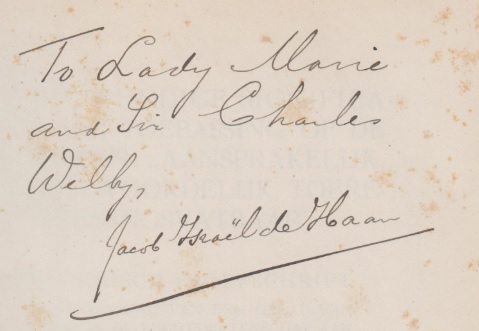 To Lady Marie
and Sir Charles
Welby,
Jacob Israël de Haan